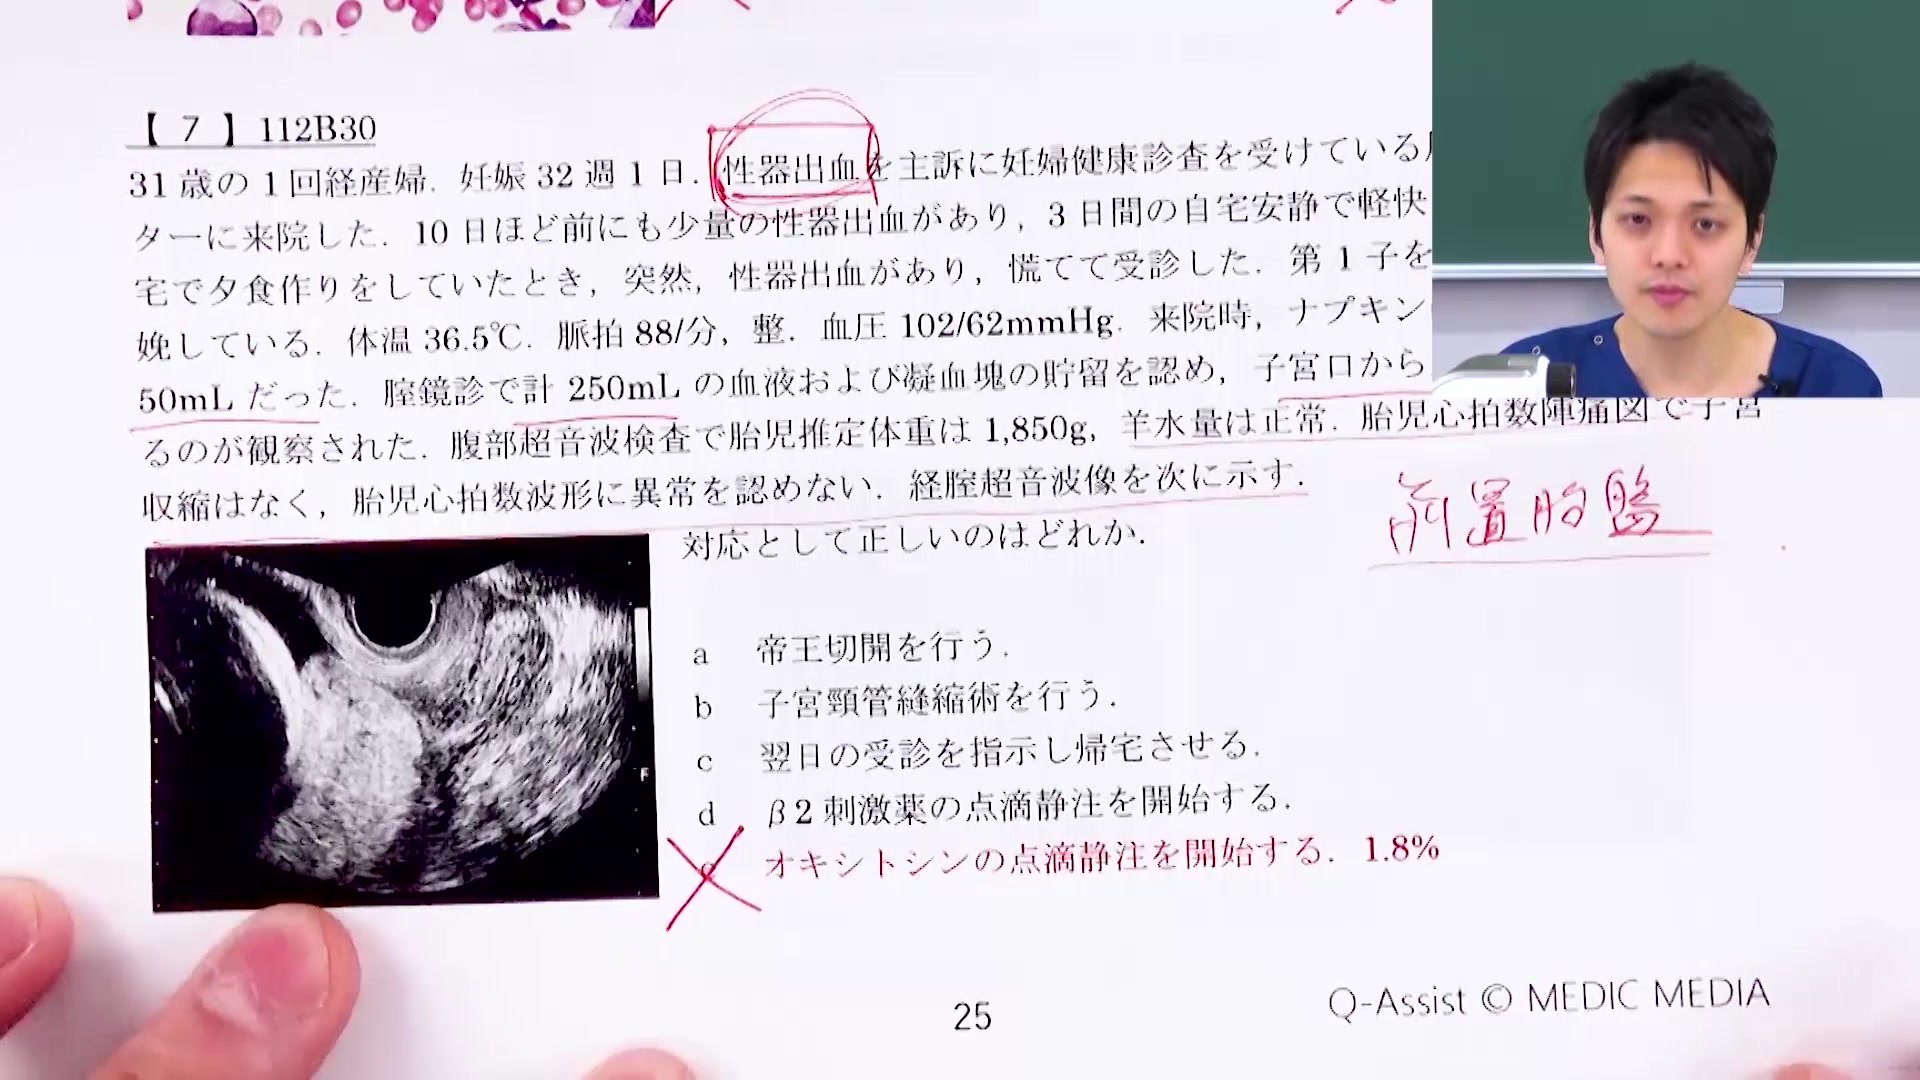 【 7 】 112B30
31 歳の 1 回経産婦．妊娠 32 週 1 日．性器出血を主訴に妊婦健康診査を受けている
ターに来院した．10 日ほど前にも少量の性器出血があり，3 日間の自宅安静で軽快
宅で夕食作りをしていたとき，突然，性器出血があり，慌てて受診した．第 1 子を
娩している．体温 36.5℃．脈拍 88/分，整．血圧 102/62mmHg．来院時，ナプキン
50mL だった．腟鏡診で計 250mL の血液および凝血塊の貯留を認め，子宮口から
るのが観察された．腹部超音波検査で胎児推定体重は 1,850g，羊水量は正常．胎児心拍数陣痛図で子宮
収縮はなく，胎児心拍数波形に異常を認めない．経腟超音波像を次に示す．
前置胎盤
対応として正しいのはどれか．
a 帝王切開を行う．
b 子宮頸管縫縮術を行う．
c 翌日の受診を指示し帰宅させる．
d β2 刺激薬の点滴静注を開始する．
e オキシトシンの点滴静注を開始する．1.8%
25
Q-Assist © MEDIC MEDIA